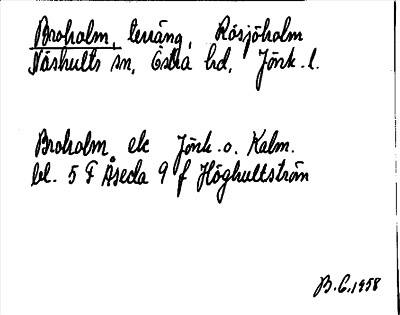 Broholm, terräng, Rösjöholm
Näshults sn, Östra hd, Jönk. l.
Broholm ek Jönk. o. Kalm.
bl. 5 F Åseda 9 f Höghultström
B.G. 1958